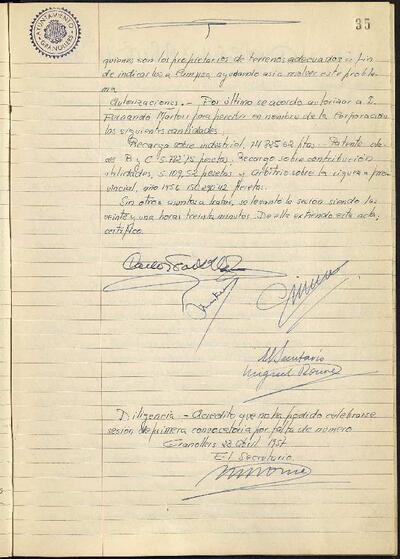 AYUNTAMIENTO
GRANOLLERS
35
quienes son los propietarios de terrenos adecuados a fin
de indicarlos a Campsa, ayudando asi a resolver este proble
ma
Autorizaciones.- Por último se acordo autorizar a D.
Fernando Martori para percibir en la Corporación
las siguientes cantidades
Recargo sobre industrial, ptas. Patente
B y C 5.772,75 pesetas, Recargo sobre contribución
utilidades, 5.109,52 pesetas y Arbitrio sobre la riqueza pro
vincial, año 1956 pesetas.
Sin otros asuntos a tratar, se levanto la sesion siendo las
veinte y una horas treinta minutos. De ello extiendo esta acta,
certifico.
El Secretario
Miguel
Diligencia - Acredito que no ha podido celebrarse
sesión de primera convocatoria por falta de número
Granollers 23 Abril 1957
El Secretario